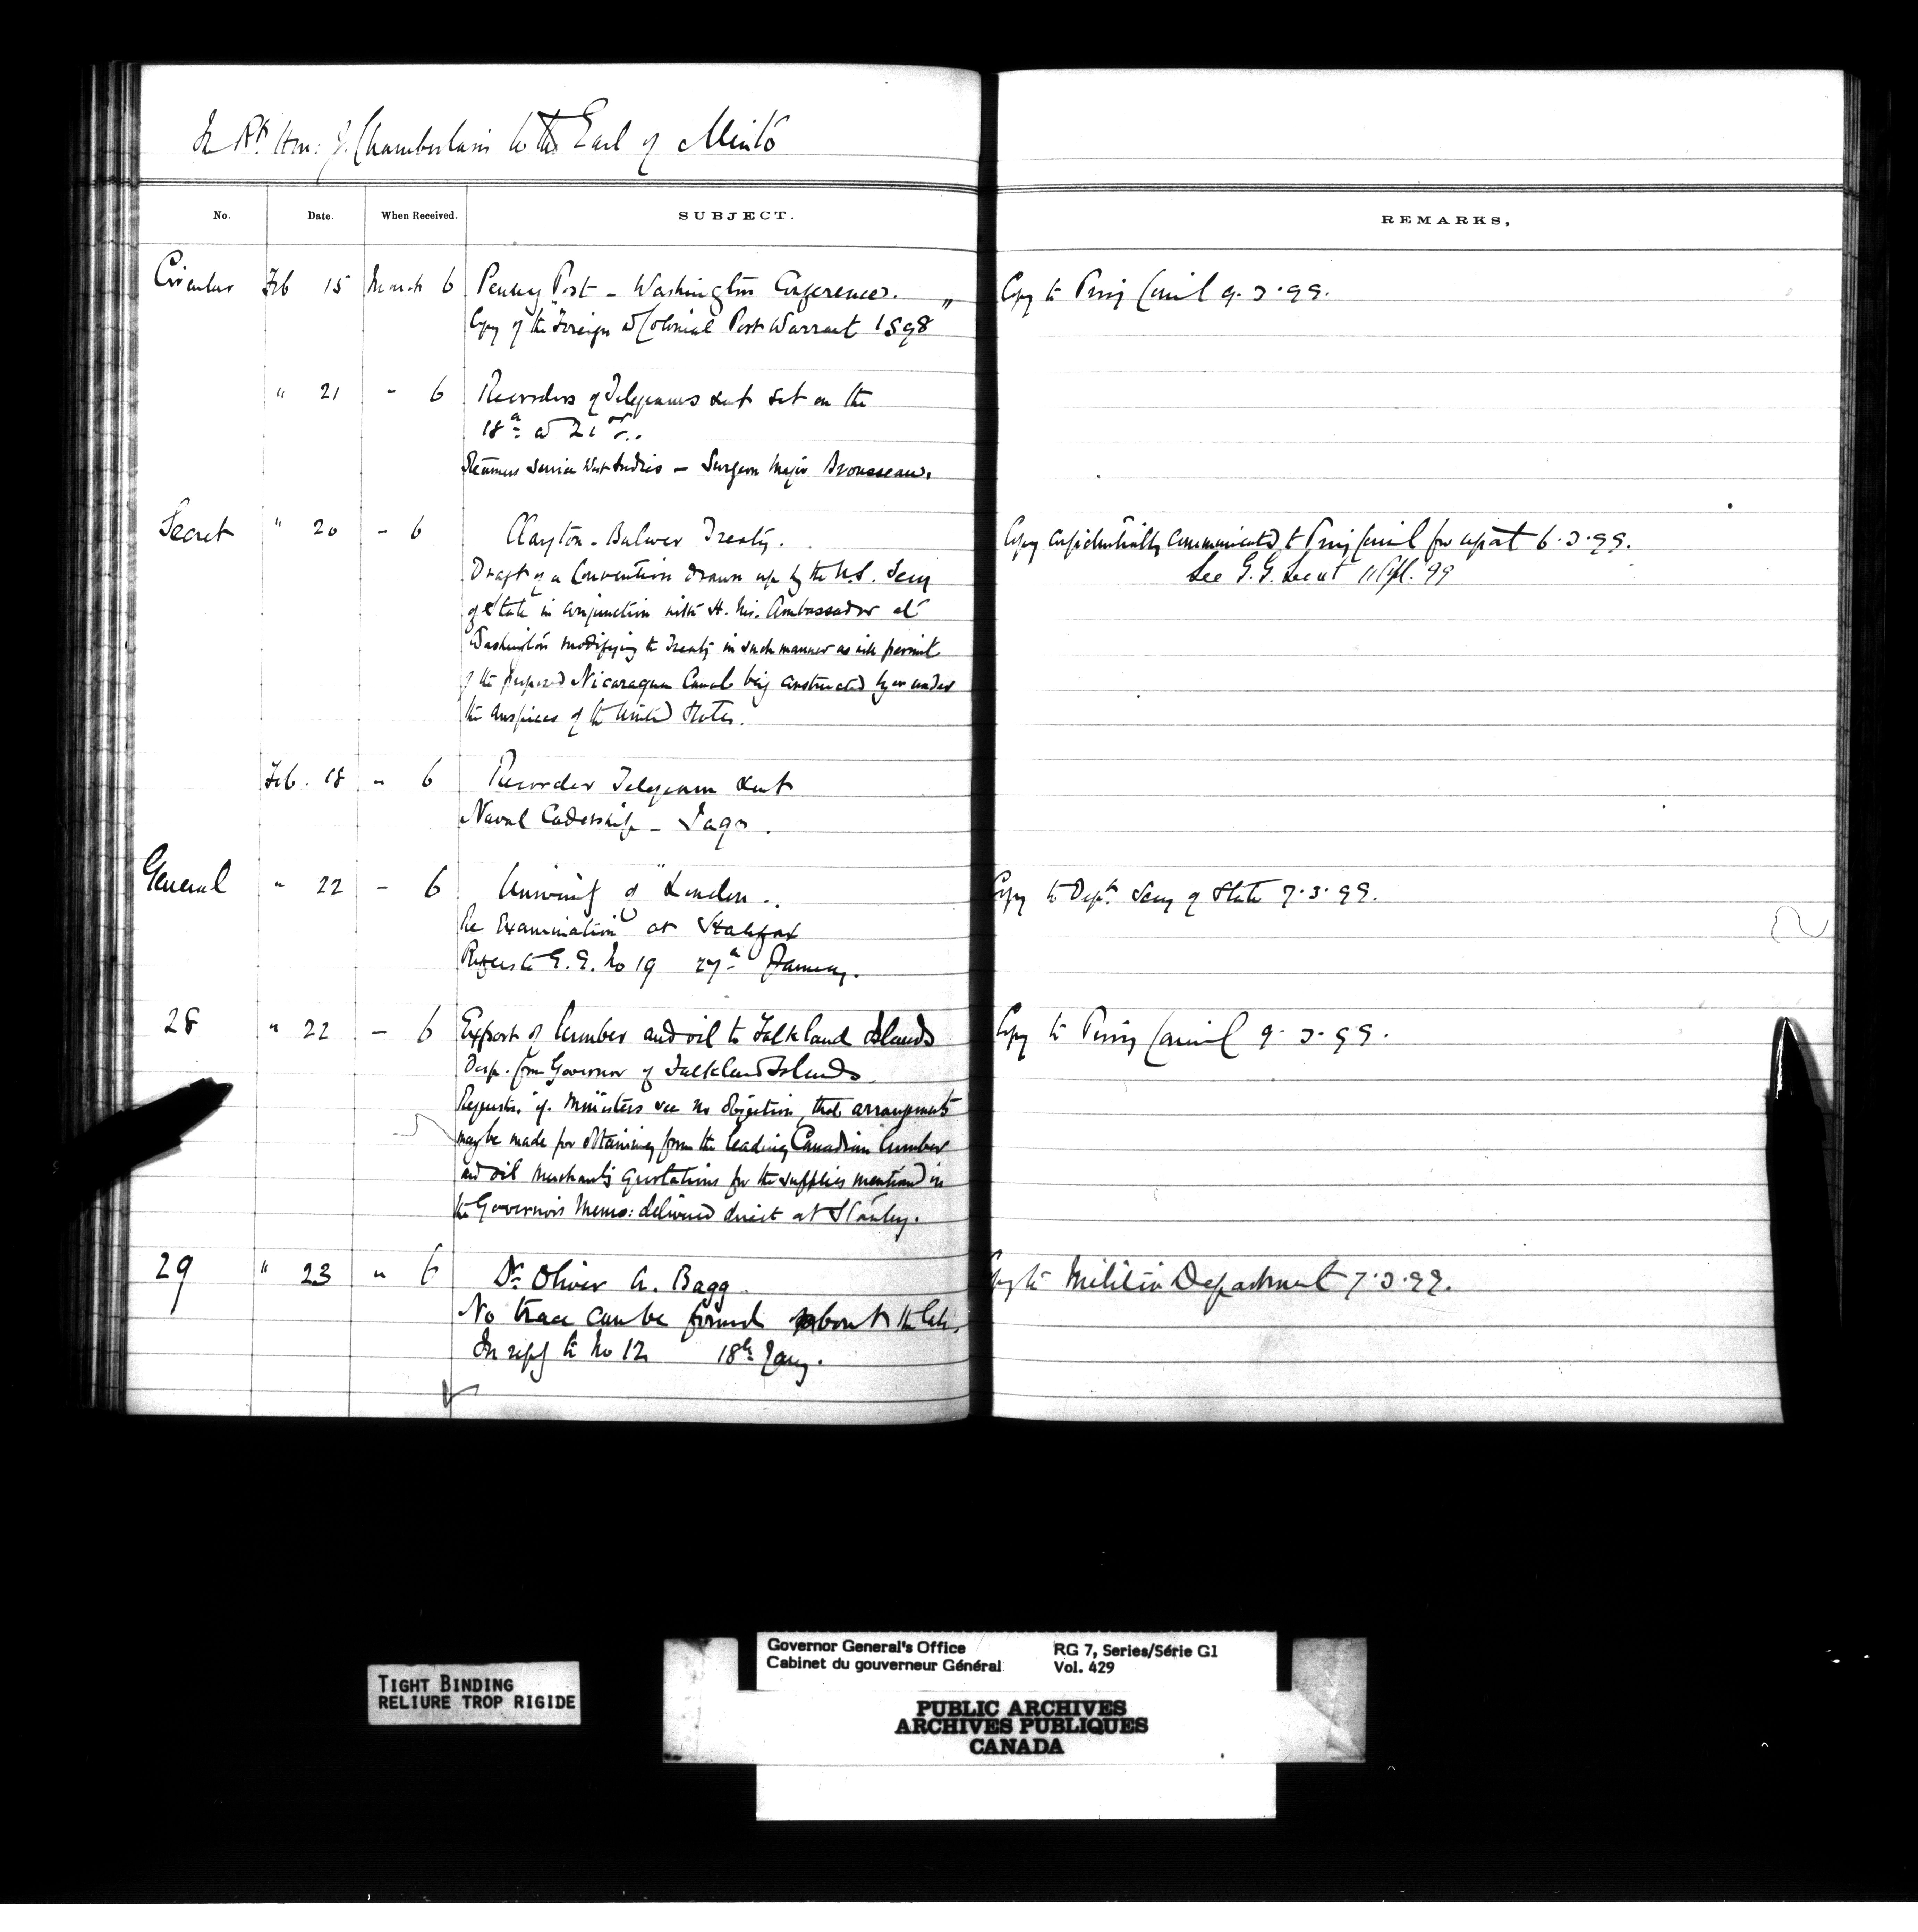 The Rt. Hon: J. Chamberlain to the Earl of Minto
No. Date. When Received. SUBJECT. REMARKS,
Circular Feb 15 March 6 Penny Post - Washington Conference. Copy to Privy Council 9.3.99.
Copy of the "Foreign & Colonial Post Warrant 1898"
" 21 - 6 Recorders of Telegrams sent on the
18th & 21st..
Steamer Service West Indies - Surgeon Major Brousseau.
Secret " 20 - 6 Clayton-Bulwer Treaty. Copy confidentially communicated to Privy Council for report 6.3.99.
See G.G. Secret 11 Apl. '99
Draft of a Convention drawn up by the U.S. Secy
of State in conjunction with H. M's. Ambassador at
Washington modifying the Treaty in such manner as will permit
of the proposed Nicaragua Canal being constructed by or under
the auspices of the United States.
Feb. 18 " 6 Recorder Telegram sent
Naval Cadetship - Jago.
General " 22 - 6 University of London.. Copy to Dept. Secy of State 7.3.99.
Re Examination at Halifax
Refers to G.G. No 19 27th January.
28 " 22 - 6 Export of lumber and oil to Falkland Islands Copy to Privy Council 9.3.99.
Desp. from Governor of Falkland Islands
Requests, if Ministers see no objection, that arrangements
may be made for obtaining from the leading Canadian lumber
and oil merchants quotations for the supplies mentioned in
the Governor's Memo: delivered direct at Stanley.
29 " 23 " 6 Dr Oliver A. Bagg. Copy to Militia Department 7.3.99.
No trace can be found about the late.
In reply to No 12 18th Jany.
TIGHT BINDING
RELIURE TROP RIGIDE
Governor General's Office RG 7, Series/Série G1
Cabinet du gouverneur Général Vol. 429
PUBLIC ARCHIVES
ARCHIVES PUBLIQUES
CANADA